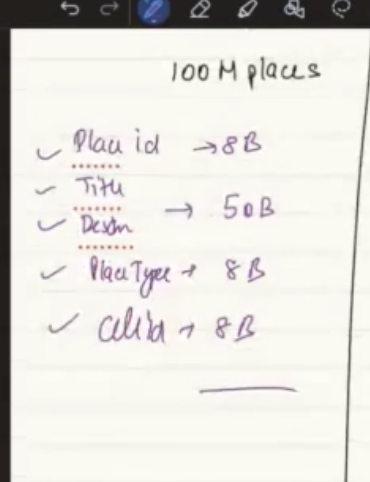 100 M places
Place id → 8B
Title
Desctn → 50B
PlaceType → 8B
cellid → 8B